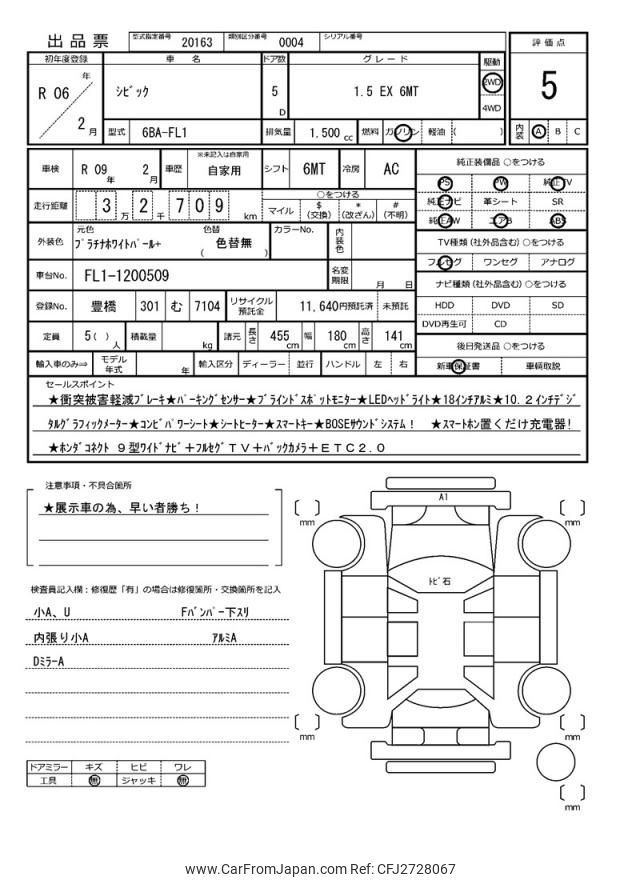 出品票 型式指定番号 20163 類別区分番号 0004 シリアル番号
初年度登録 車名 ドア数 グレード 駆動 評価点
R 06 年 2 月 シビック 5 D 1.5 EX 6MT 2WD 4WD 5
型式 6BA-FL1 排気量 1,500 cc 燃料 ガソリン 軽油 ( ) 内装 A B C
車検 R 09 年 2 月 車歴 ※未記入は自家用 自家用 シフト 6MT 冷房 AC 純正装備品 ○をつける
PS PW 純正TV
走行距離 3 万 2 千 7 0 9 km ○をつける
マイル $ (交換) * (改ざん) # (不明)
純正ナビ 革シート SR
純正AW エアB ABS
外装色 元色 プラチナホワイトパール+ 色替 ( 色替無 ) カラーNo. 内装色
TV種類 (社外品含む) ○をつける
フルセグ ワンセグ アナログ
車台No. FL1-1200509 名変期限 月 日
ナビ種類 (社外品含む) ○をつける
登録No. 豊橋 301 む 7104 リサイクル預託金 11,640円預託済 未預託
HDD DVD SD
DVD再生可 CD
定員 5 ( ) 人 積載量 kg 諸元 長さ 455 cm 幅 180 cm 高さ 141 cm
後日発送品 ○をつける
輸入車のみ⇒ モデル年式 年 輸入区分 ディーラー 並行 ハンドル 左 右 新車保証書 車輌取説
セールスポイント
★衝突被害軽減ブレーキ★パーキングセンサー★ブラインドスポットモニター★LEDヘッドライト★18インチアルミ★10.2インチデジ
タルグラフィックメーター★コンビパワーシート★シートヒーター★スマートキー★BOSEサウンドシステム! ★スマートホン置くだけ充電器!
★ホンダコネクト 9型ワイドナビ+フルセグTV+バックカメラ+ETC2.0
注意事項・不具合箇所
★展示車の為、早い者勝ち!
A1
mm
mm
トビ石
検査員記入欄:修復歴「有」の場合は修復箇所・交換箇所を記入
小A、U Fバンパー下スリ
内張り小A アルミA
DミラーA
mm
mm
mm
ドアミラー キズ ヒビ ワレ
工具 無 ジャッキ 無
www.CarFromJapan.com Ref: CFJ2728067